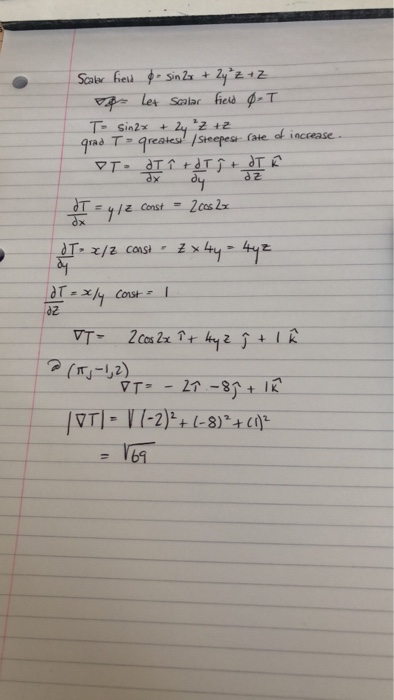 Scalar field φ = sin2x + 2y²z + z
∇φ = Let scalar field φ = T
T = sin2x + 2y²z + z
grad T = greatest / steepest rate of increase.
∇T = ∂T/∂x î + ∂T/∂y ĵ + ∂T/∂z k̂
∂T/∂x = y/z const = 2cos2x
∂T/∂y = x/z const = z × 4y = 4yz
∂T/∂z = x/y const = 1
∇T = 2cos2x î + 4yz ĵ + 1 k̂
@ (π, -1, 2)
∇T = - 2î - 8ĵ + 1k̂
|∇T| = √(-2)² + (-8)² + (1)²
= √69